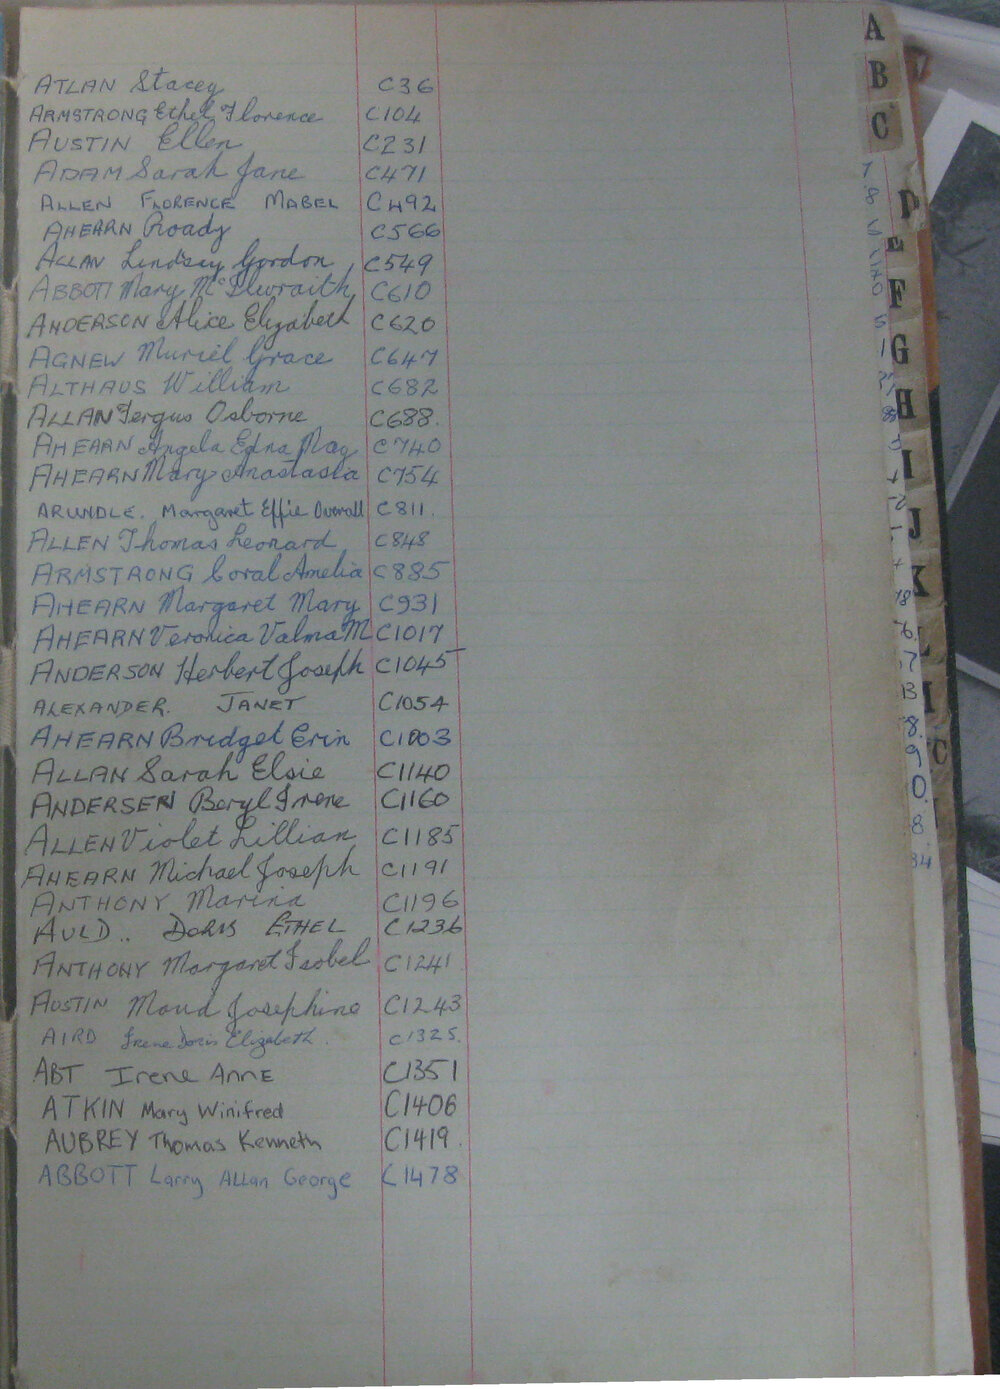 ATLAN Stacey C36
ARMSTRONG Ethel Florence C104
AUSTIN Ellen C231
ADAM Sarah Jane C471
ALLEN FLORENCE MABEL C492
AHEARN Roady C566
ALLAN Lindsay Gordon C549
ABBOTT Mary McIlwraith C610
ANDERSON Alice Elizabeth C620
AGNEW Muriel Grace C647
ALTHAUS William C682
ALLAN Fergus Osborne C688.
AHEARN Angela Edna May C740
AHEARN Mary Anastasia C754
ARUNDLE. Margaret Effie Overall C811.
ALLEN Thomas Leonard C848
ARMSTRONG Coral Amelia C885
AHEARN Margaret Mary C931
AHEARN Veronica Valma M C1017
ANDERSON Herbert Joseph C1045
ALEXANDER. JANET C1054
AHEARN Bridget Erin C1003
ALLAN Sarah Elsie C1140
ANDERSEN Beryl Irene C1160
ALLEN Violet Lillian C1185
AHEARN Michael Joseph C1191
ANTHONY Marina C1196
AULD.. DORIS ETHEL C1236
ANTHONY Margaret Isobel C1241.
AUSTIN Maud Josephine C1243
AIRD Irene Doris Elizabeth. C1325.
ABT Irene ANNE C1351
ATKIN Mary Winifred C1406
AUBREY Thomas Kenneth C1419.
ABBOTT Larry Allan George C1478
A
B
C
D
E
F
G
H
I
J
K
L